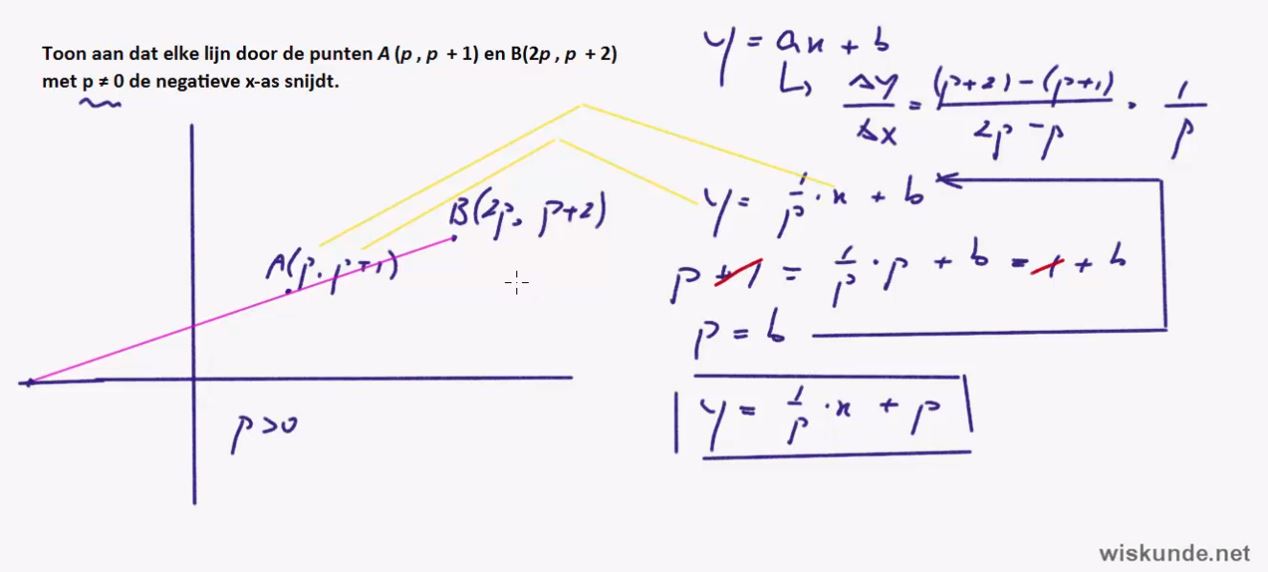 Toon aan dat elke lijn door de punten A (p , p + 1) en B(2p , p + 2)
met p ≠ 0 de negatieve x-as snijdt.
y = ax + b
↳ Δy/Δx = ((p+2) - (p+1))/(2p - p) = 1/p
B(2p, p+2)
y = 1/p · x + b
A(p, p+1)
p + 1 = 1/p · p + b = 1 + b
p = b
y = 1/p · x + p
p > 0
wiskunde.net